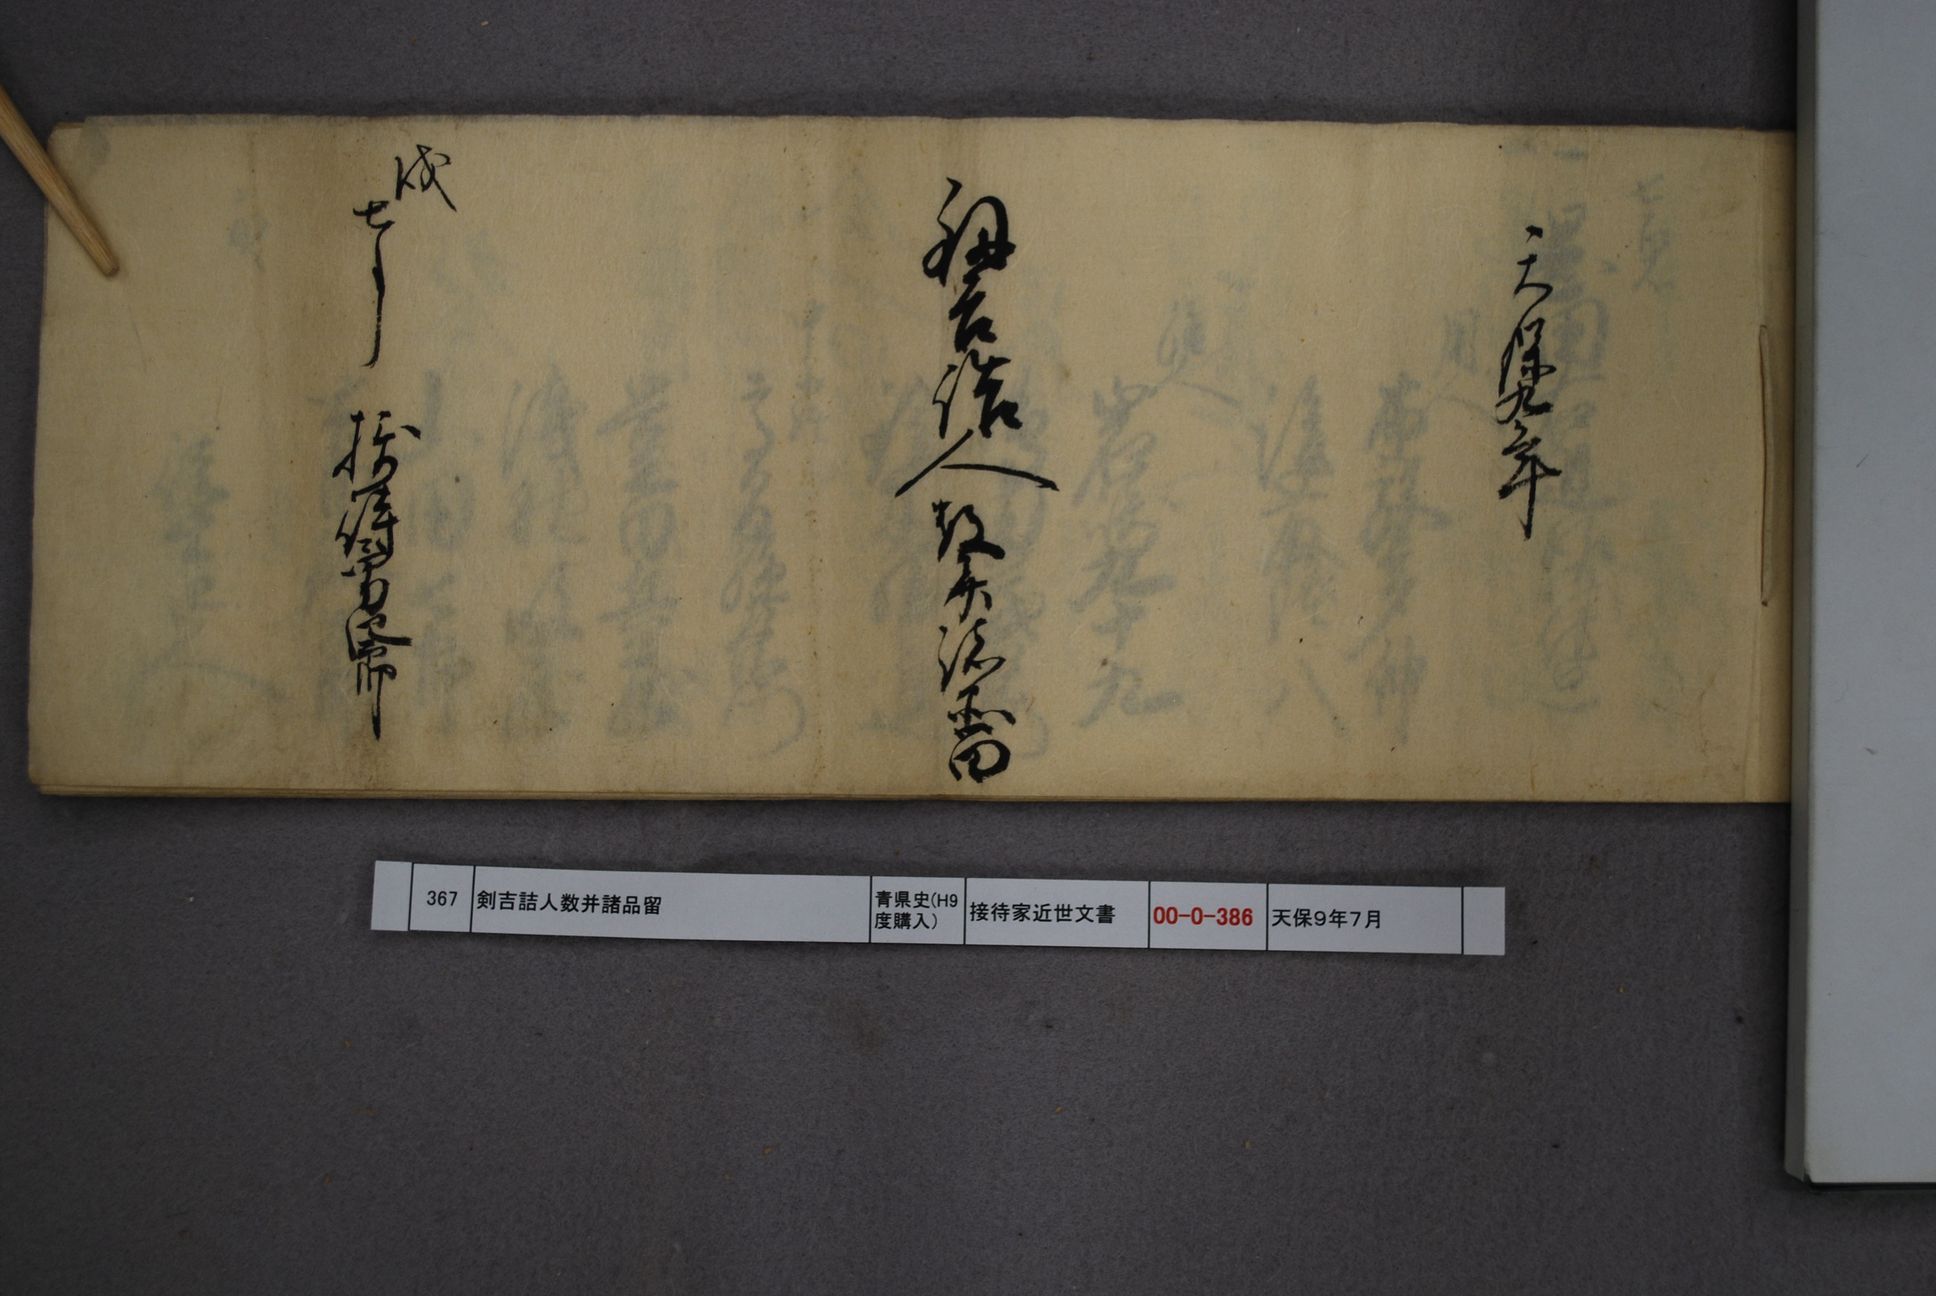 天保九年
釼吉詰人数并諸品留
戌
七月
接待勇治郎
367
剣吉詰人数并諸品留
青県史(H9
度購入)
接待家近世文書
00-0-386
天保9年7月